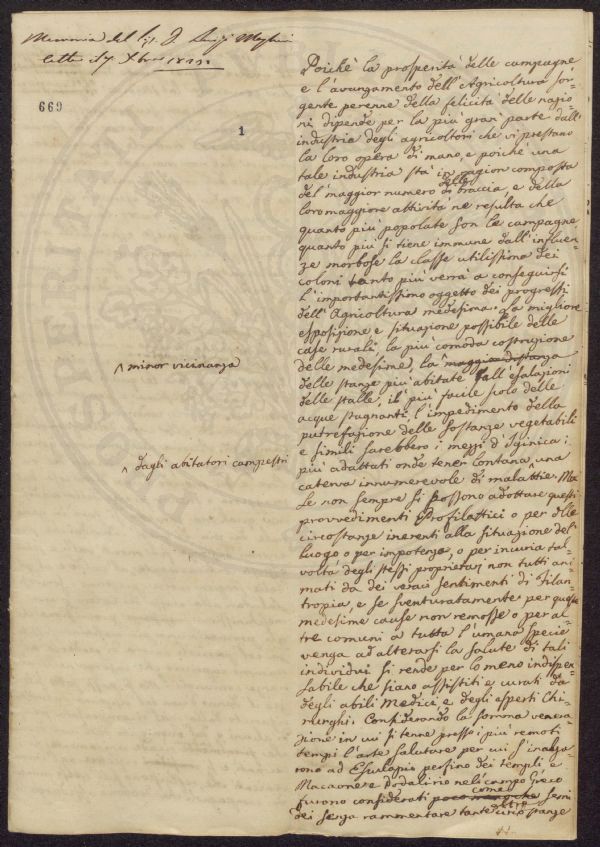 Memoria del Sig. D. Luigi Magheri
letta il 7 Xbre
669
1
Poichè la prosperità delle campagne
e l'avanzamento dell'Agricoltura sor=
gente perenne della felicità delle nazio=
ni dipende per la più gran parte dall'
industria degli agricoltori che vi prestano
la loro opera di mano, e poichè una
tale industria stà in ragion composta
del maggior numero delle braccia, e della
loro maggiore attività ne resulta che
quanto più popolate son le campagne
quanto più si tiene immune dall'influen=
ze morbose la classe utilissima dei
coloni tanto più verrà a conseguirsi
l'importantissimo oggetto dei progressi
dell'Agricoltura medesima. La migliore
esposizione e situazione possibile delle
case rurali, la più comoda costruzione
delle medesime, la maggior distanza
^ minor vicinanza
delle stanze più abitate dall'esalazioni
delle stalle, il più facile scolo delle
acque stagnanti, l'impedimento della
putrefazione delle sostanze vegetabili
e simili sarebbero i mezzi d'Iginica i
più adattati onde tener lontana una
^ dagli abitatori campestri
caterva innumerevole di malattie. Ma
se non sempre si possono adottare questi
provvedimenti Profilattici o per delle
circostanze inerenti alla situazione del
luogo o per impotenza, o per incuria tal=
volta degli stessi proprietarj non tutti ani=
mati da dei veraci sentimenti di Filan=
tropia, e se sventuratamente per queste
medesime cause non remosse o per al=
tre comuni a tutta l'umana specie
venga ad alterarsi la salute di tali
individui si rende per lo meno indispen=
sabile che siano assistiti e curati da
degli abili Medici e degli esperti Chi=
rurghi. Considerando la somma venera=
zione in cui si tenne presso i più remoti
tempi l'arte salutare per cui s'inalza
rono ad Esculapio perfino dei templi e
Macaone e Podalirio nel campo Greco
furono considerati poco meno che come semi
dei senza rammentare tante altre circostanze